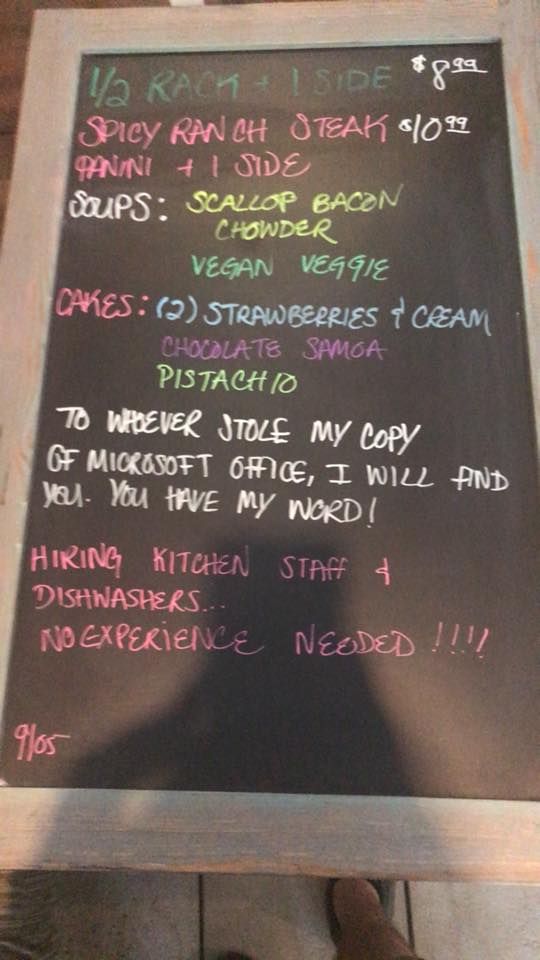 1/2 RACK + 1 SIDE $8.99
SPICY RANCH STEAK $10.99
PANINI + 1 SIDE
SOUPS: SCALLOP BACON
CHOWDER
VEGAN VEGGIE
CAKES: (2) STRAWBERRIES & CREAM
CHOCOLATE SAMOA
PISTACHIO
TO WHOEVER STOLE MY COPY
OF MICROSOFT OFFICE, I WILL FIND
YOU. YOU HAVE MY WORD!
HIRING KITCHEN STAFF &
DISHWASHERS...
NO EXPERIENCE NEEDED !!!!
9/05